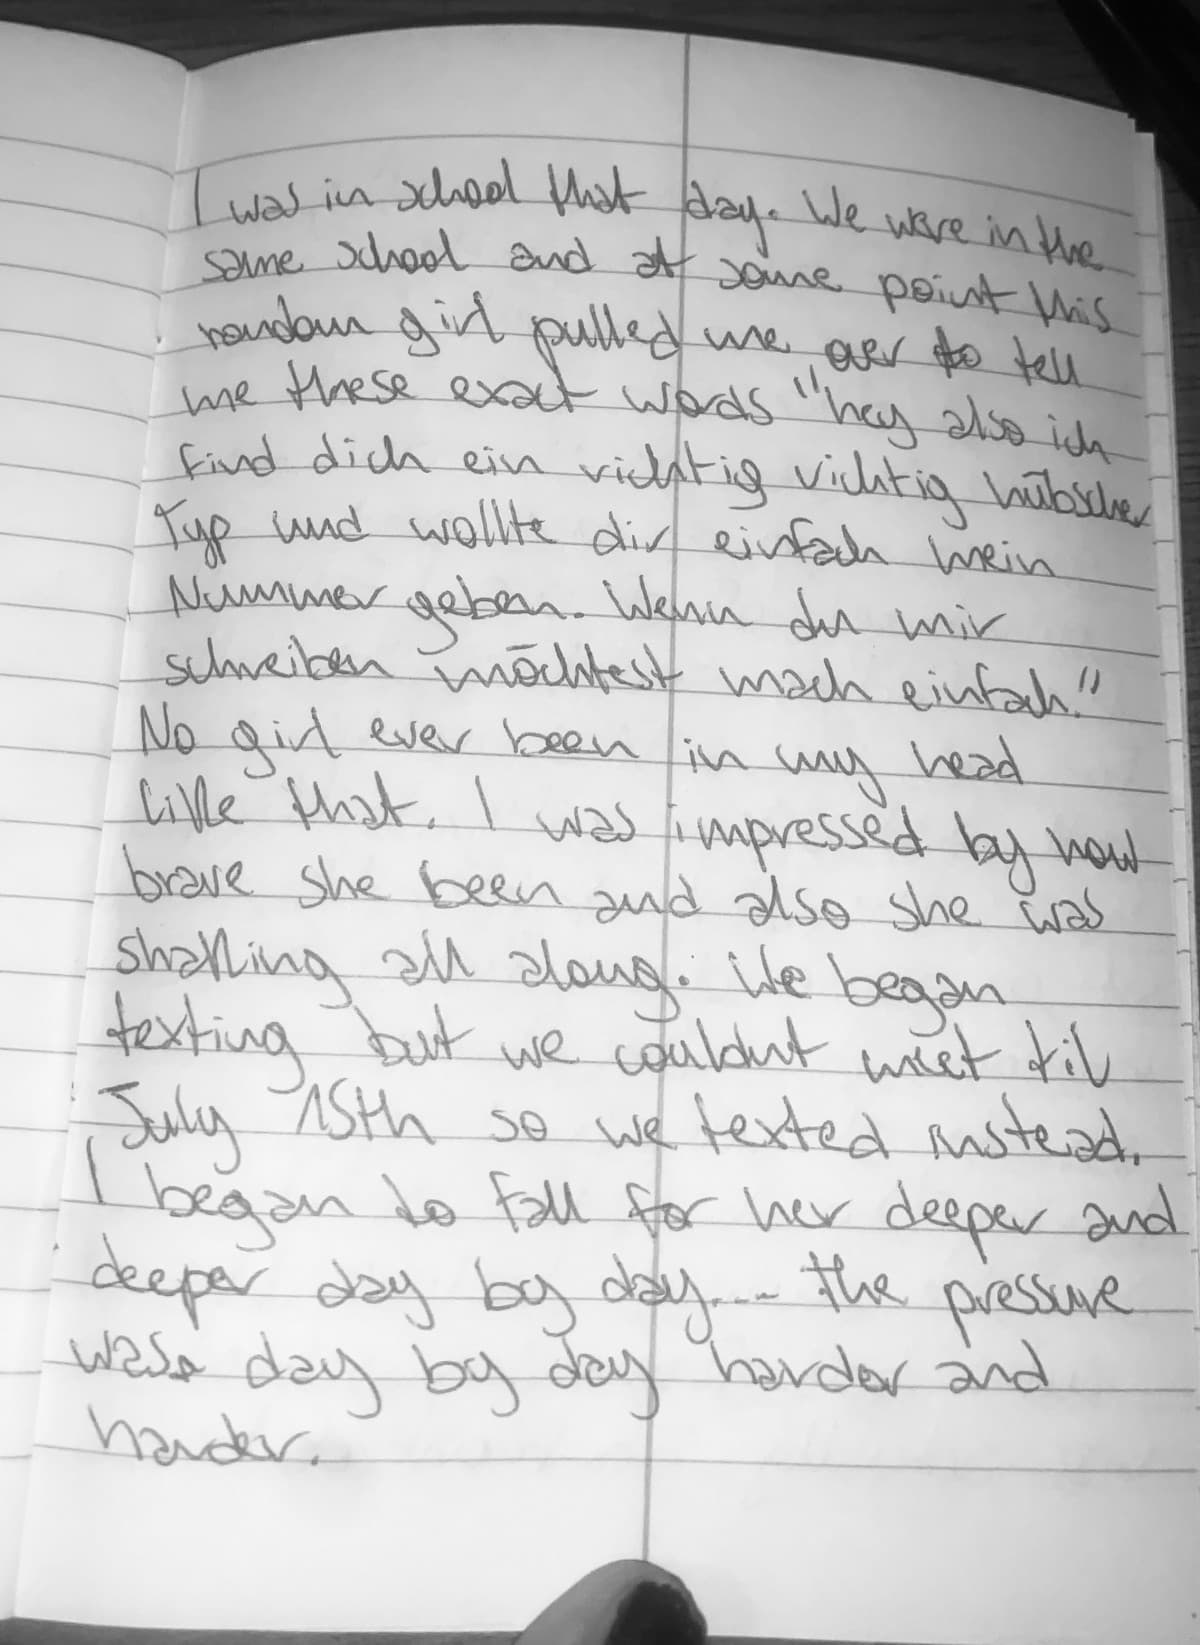 I was in school that day. We were in the
same school and at some point this
random girl pulled me over to tell
me these exact words "hey also ich
find dich ein richtig richtig hübscher
Typ und wollte dir einfach mein
Nummer geben. Wenn du mir
schreiben möchtest mach einfach."
No girl ever been in my head
like that. I was impressed by how
brave she been and also she was
shaking all along. We began
texting but we couldnt meet til
July 15th so we texted instead.
I began to fall for her deeper and
deeper day by day.... the pressure
was day by day harder and
harder.